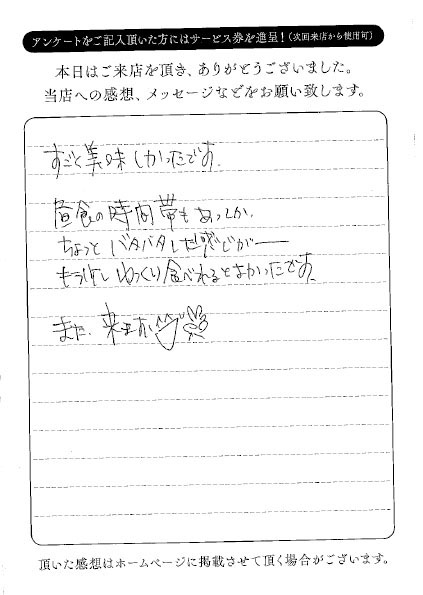 アンケートをご記入頂いた方にはサービス券を進呈！(次回来店から使用可)
本日はご来店を頂き、ありがとうございました。
当店への感想、メッセージなどをお願い致します。
すごく美味しかったです。
昼食の時間帯もあってか、
ちょっとバタバタした感じがー
もう少しゆっくり食べれるとよかったです。
また、来ます
頂いた感想はホームページに掲載させて頂く場合がございます。